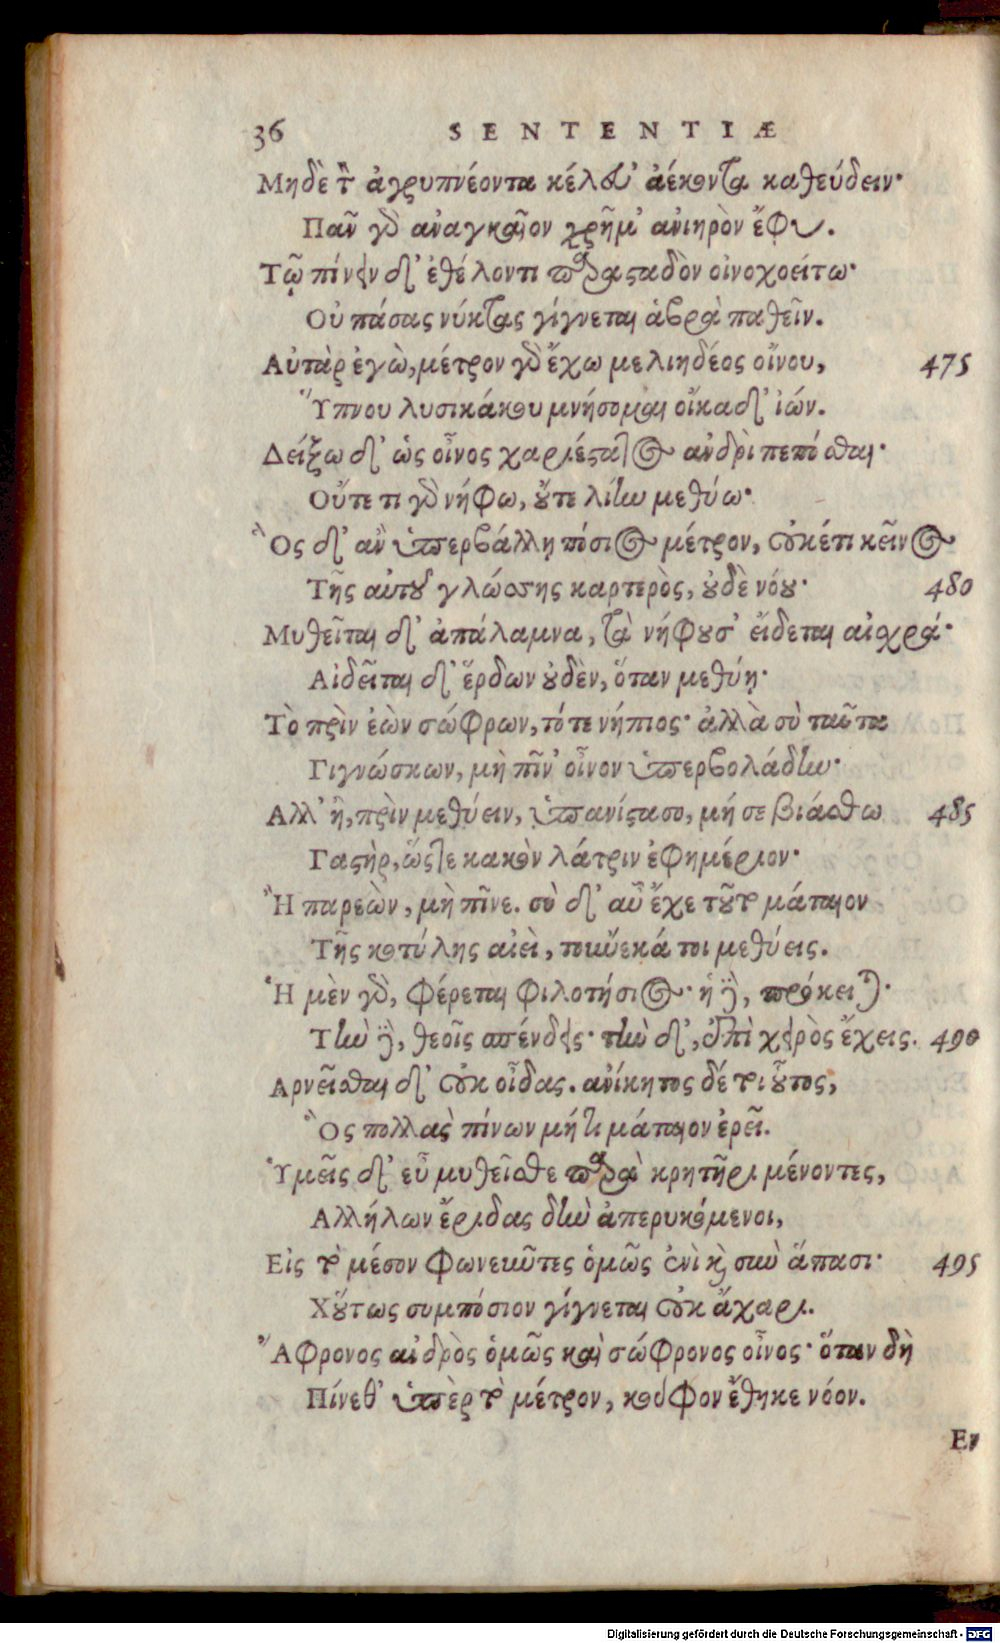 36 SENTENTIÆ
Μηδὲ τ̀ ἀγρυπνέοντα κέλευ' ἀέκοντα καθεύδειν·
Πᾶν γὸ ἀναγκαῖον χρῆμ' ἀνιηρὸν ἔφυ.
Τῷ πίνειν δ' ἐθέλοντι παραςαδὸν οἰνοχοείτω·
Οὐ πάσας νύκτας γίγνεται ἁβρὰ παθεῖν.
Αὐτὰρ ἐγὼ, μέτρον γὸ ἔχω μελιηδέος οἴνου, 475
Ὕπνου λυσικάκου μνήσομαι οἴκαδ' ἰών.
Δείξω δ' ὡς οἶνος χαριέςατος ἀνδρὶ πεπόσθαι·
Οὔτε τι γὸ νήφω, οὔτε λίην μεθύω·
Ὃς δ' ἂν ὑπερβάλλῃ πόσιος μέτρον, οὐκέτι κεῖνος
Τῆς αὐτοῦ γλώσσης καρτερὸς, οὐδὲ νόου· 480
Μυθεῖται δ' ἀπάλαμνα, τὰ νήφουσ' εἴδεται αἰσχρά·
Αἰδεῖται δ' ἕρδων οὐδὲν, ὅταν μεθύῃ·
Τὸ πρὶν ἐὼν σώφρων, τότε νήπιος· ἀλλὰ σὺ ταῦτα
Γιγνώσκων, μὴ πῖν' οἶνον ὑπερβολάδην·
Αλλ' ἢ, πρὶν μεθύειν, ὑπανίςασο, μή σε βιάσθω 485
Γαςὴρ, ὥςτε κακὸν λάτριν ἐφημέριον·
Ἢ παρεὼν, μὴ πῖνε. σὺ δ' αὖ ἔχε τοῦτο μάταιον
Τῆς κοτύλης αἰεὶ, τοὔνεκά τοι μεθύεις.
Ἡ μὲν γὸ, φέρεται φιλοτήσιος· ἡ δὲ, πρόκειται·
Τὴν δὲ, θεοῖς σπένδεις· τὴν δ', ἐπὶ χειρὸς ἔχεις. 490
Αρνεῖσθαι δ' οὐκ οἶδας. ἀνίκητος δέ τοι οὗτος,
Ὃς πολλὰς πίνων μή τι μάταιον ἐρεῖ.
Ὑμεῖς δ' εὖ μυθεῖσθε παρὰ κρητῆρι μένοντες,
Αλλήλων ἔριδας δὴν ἀπερυκόμενοι,
Εἰς τὸ μέσον φωνεῦντες ὁμῶς ἑνὶ καὶ σὺν ἅπασι· 495
Χοὔτως συμπόσιον γίγνεται οὐκ ἄχαρι.
Ἄφρονος ἀνδρὸς ὁμῶς καὶ σώφρονος οἶνος· ὅταν δὴ
Πίνεθ' ὑπὲρ τὸ μέτρον, κοῦφον ἔθηκε νόον.
Εν
Digitalisierung gefördert durch die Deutsche Forschungsgemeinschaft - DFG